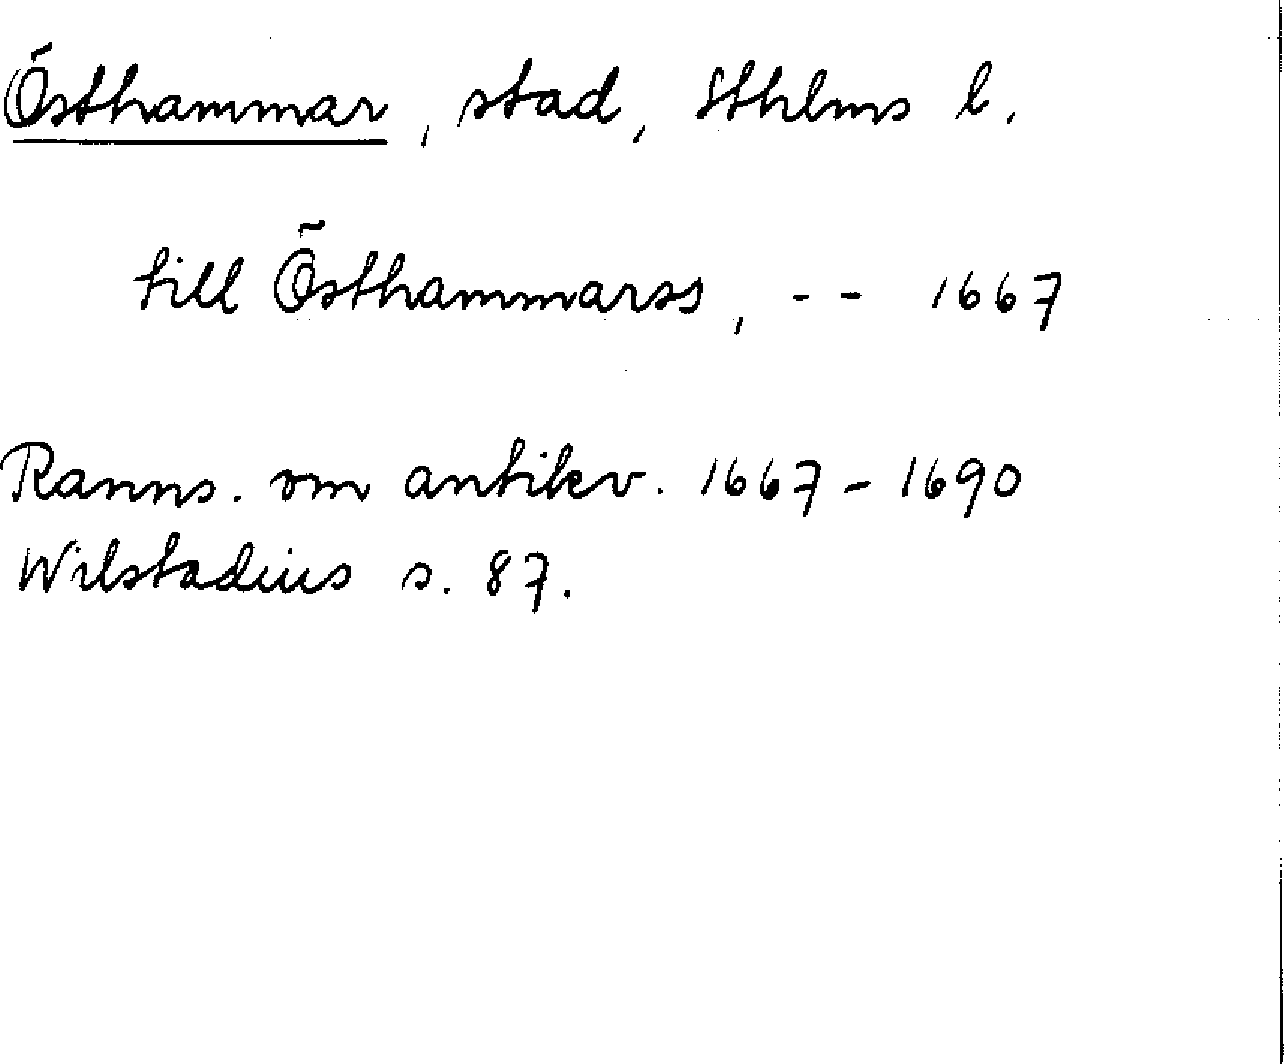 Östhammar, stad, Sthlms l.
till Östhammarss, - - 1667
Ranns. om antikv. 1667 - 1690
Wilstadius s. 87.